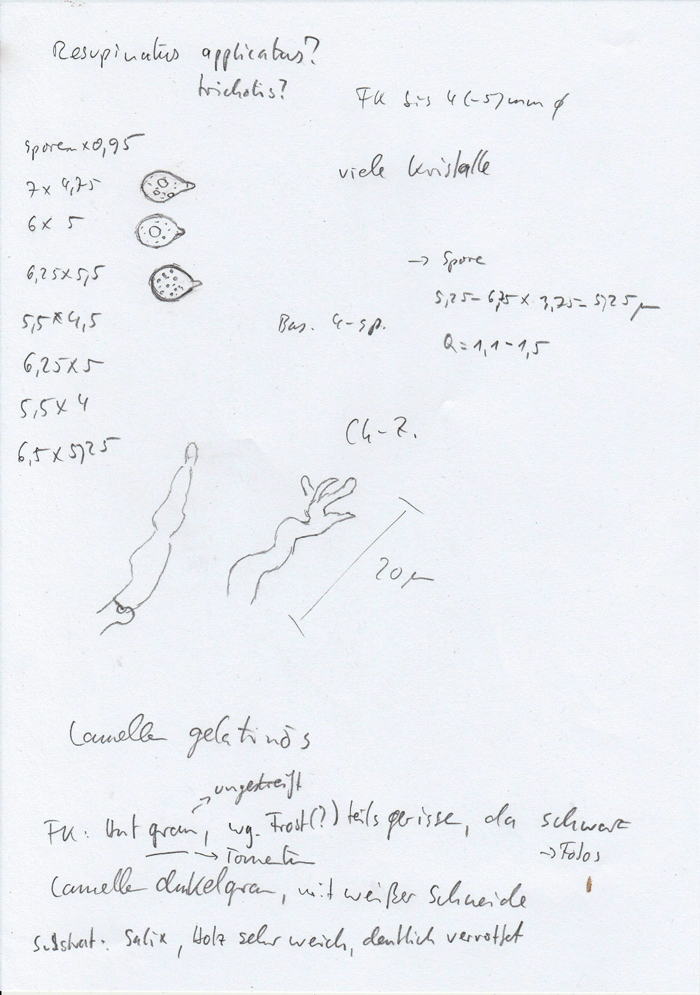 Resupinatus applicatus?
trichotis?
FK bis 4 (-5) mm ø
Sporen x 0,95
viele Kristalle
7 x 4,75
6 x 5
6,25 x 5,5
5,5 x 4,5
6,25 x 5
5,5 x 4
6,5 x 5,25
→ Spore
5,25 - 6,75 x 3,75 - 5,25 µm
Q = 1,1 - 1,5
Bas. 4-sp.
Ch-Z.
20 µ
Lamellen gelatinös
→ ungestreift
FK: Hut grau, wg. Frost(?) teils gerissen, da schwarz
→ Tomentum
→ Fotos
Lamellen dunkelgrau, mit weißer Schneide
Substrat: Salix, Holz sehr weich, deutlich verrottet